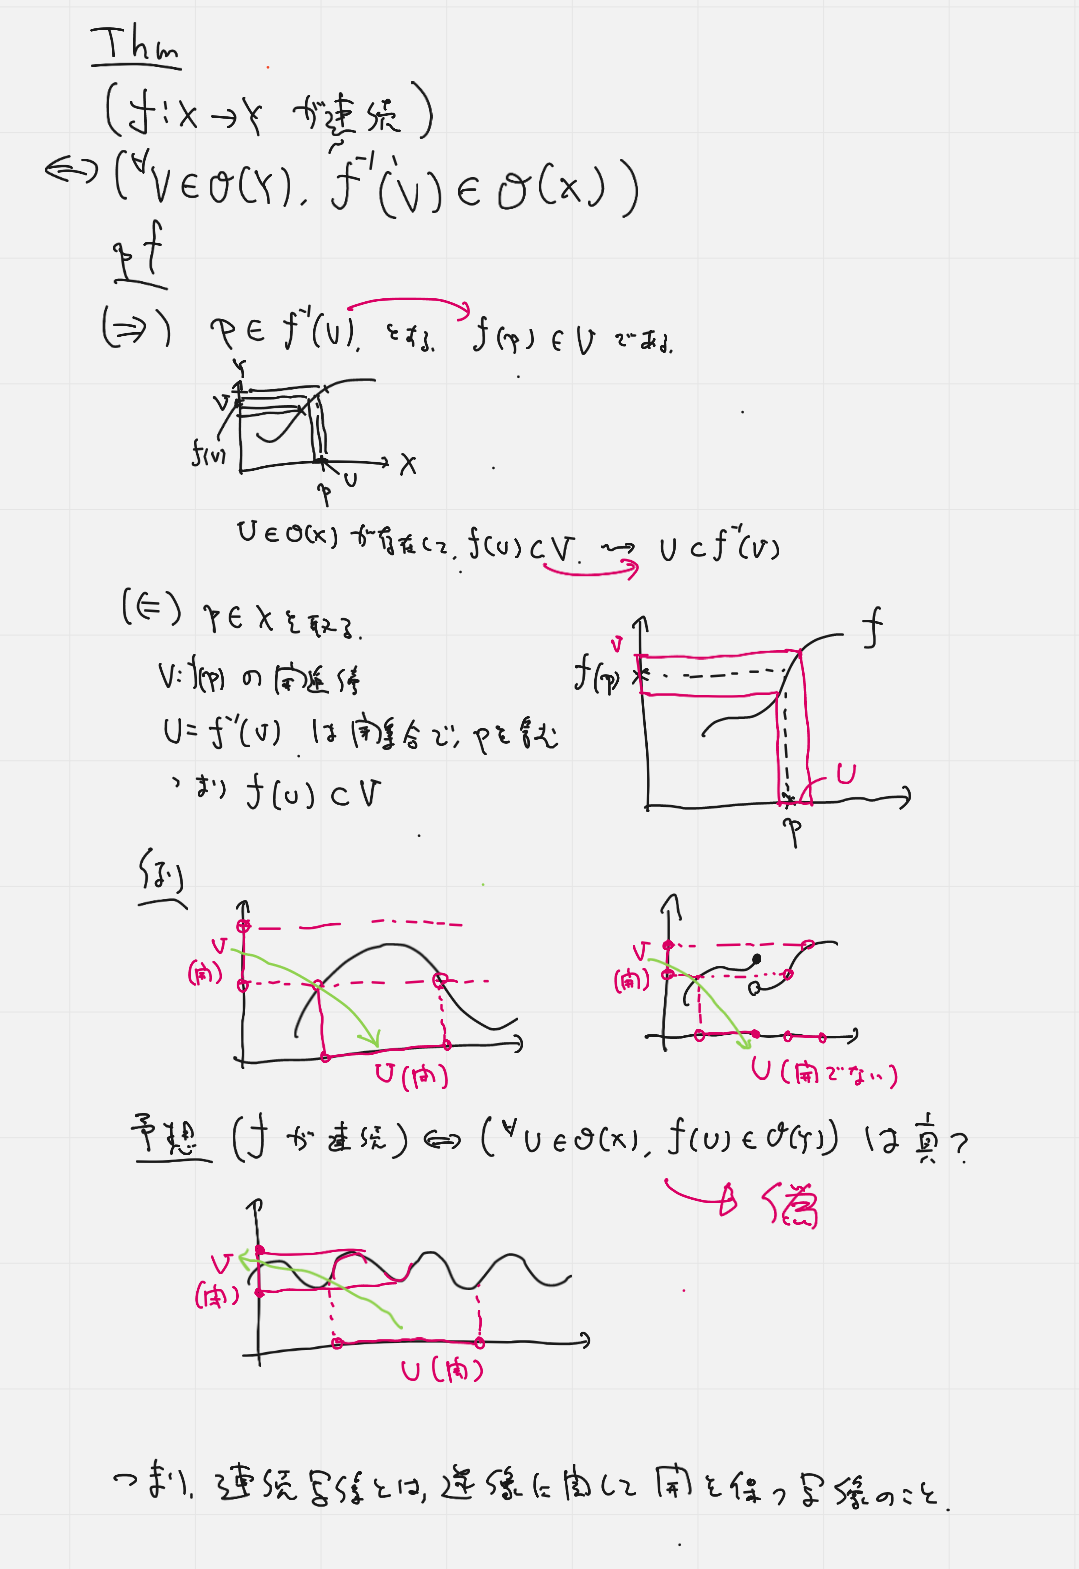 Thm
(f:X→Yが連続)
⇔(∀V∈O(Y), f⁻¹(V)∈O(X))
pf
(⇒) p∈f⁻¹(V), とする. f(p)∈Vである.
Y
V
f(V)
X
U
p
U∈O(X)が存在して, f(U)⊂V. ⇝ U⊂f⁻¹(V)
(⇐) p∈Xを取る.
V:f(p)の開近傍
U=f⁻¹(V) は開集合で, pを含む
つまり f(U)⊂V
V
f
f(p)
U
p
例
V
(開)
U(開)
V
(開)
U(開でない)
予想 (fが連続)⇔(∀U∈O(X), f(U)∈O(Y)) は真?
→ 偽
V
(開)
U(開)
つまり, 連続写像とは, 逆像に関して開を保つ写像のこと.